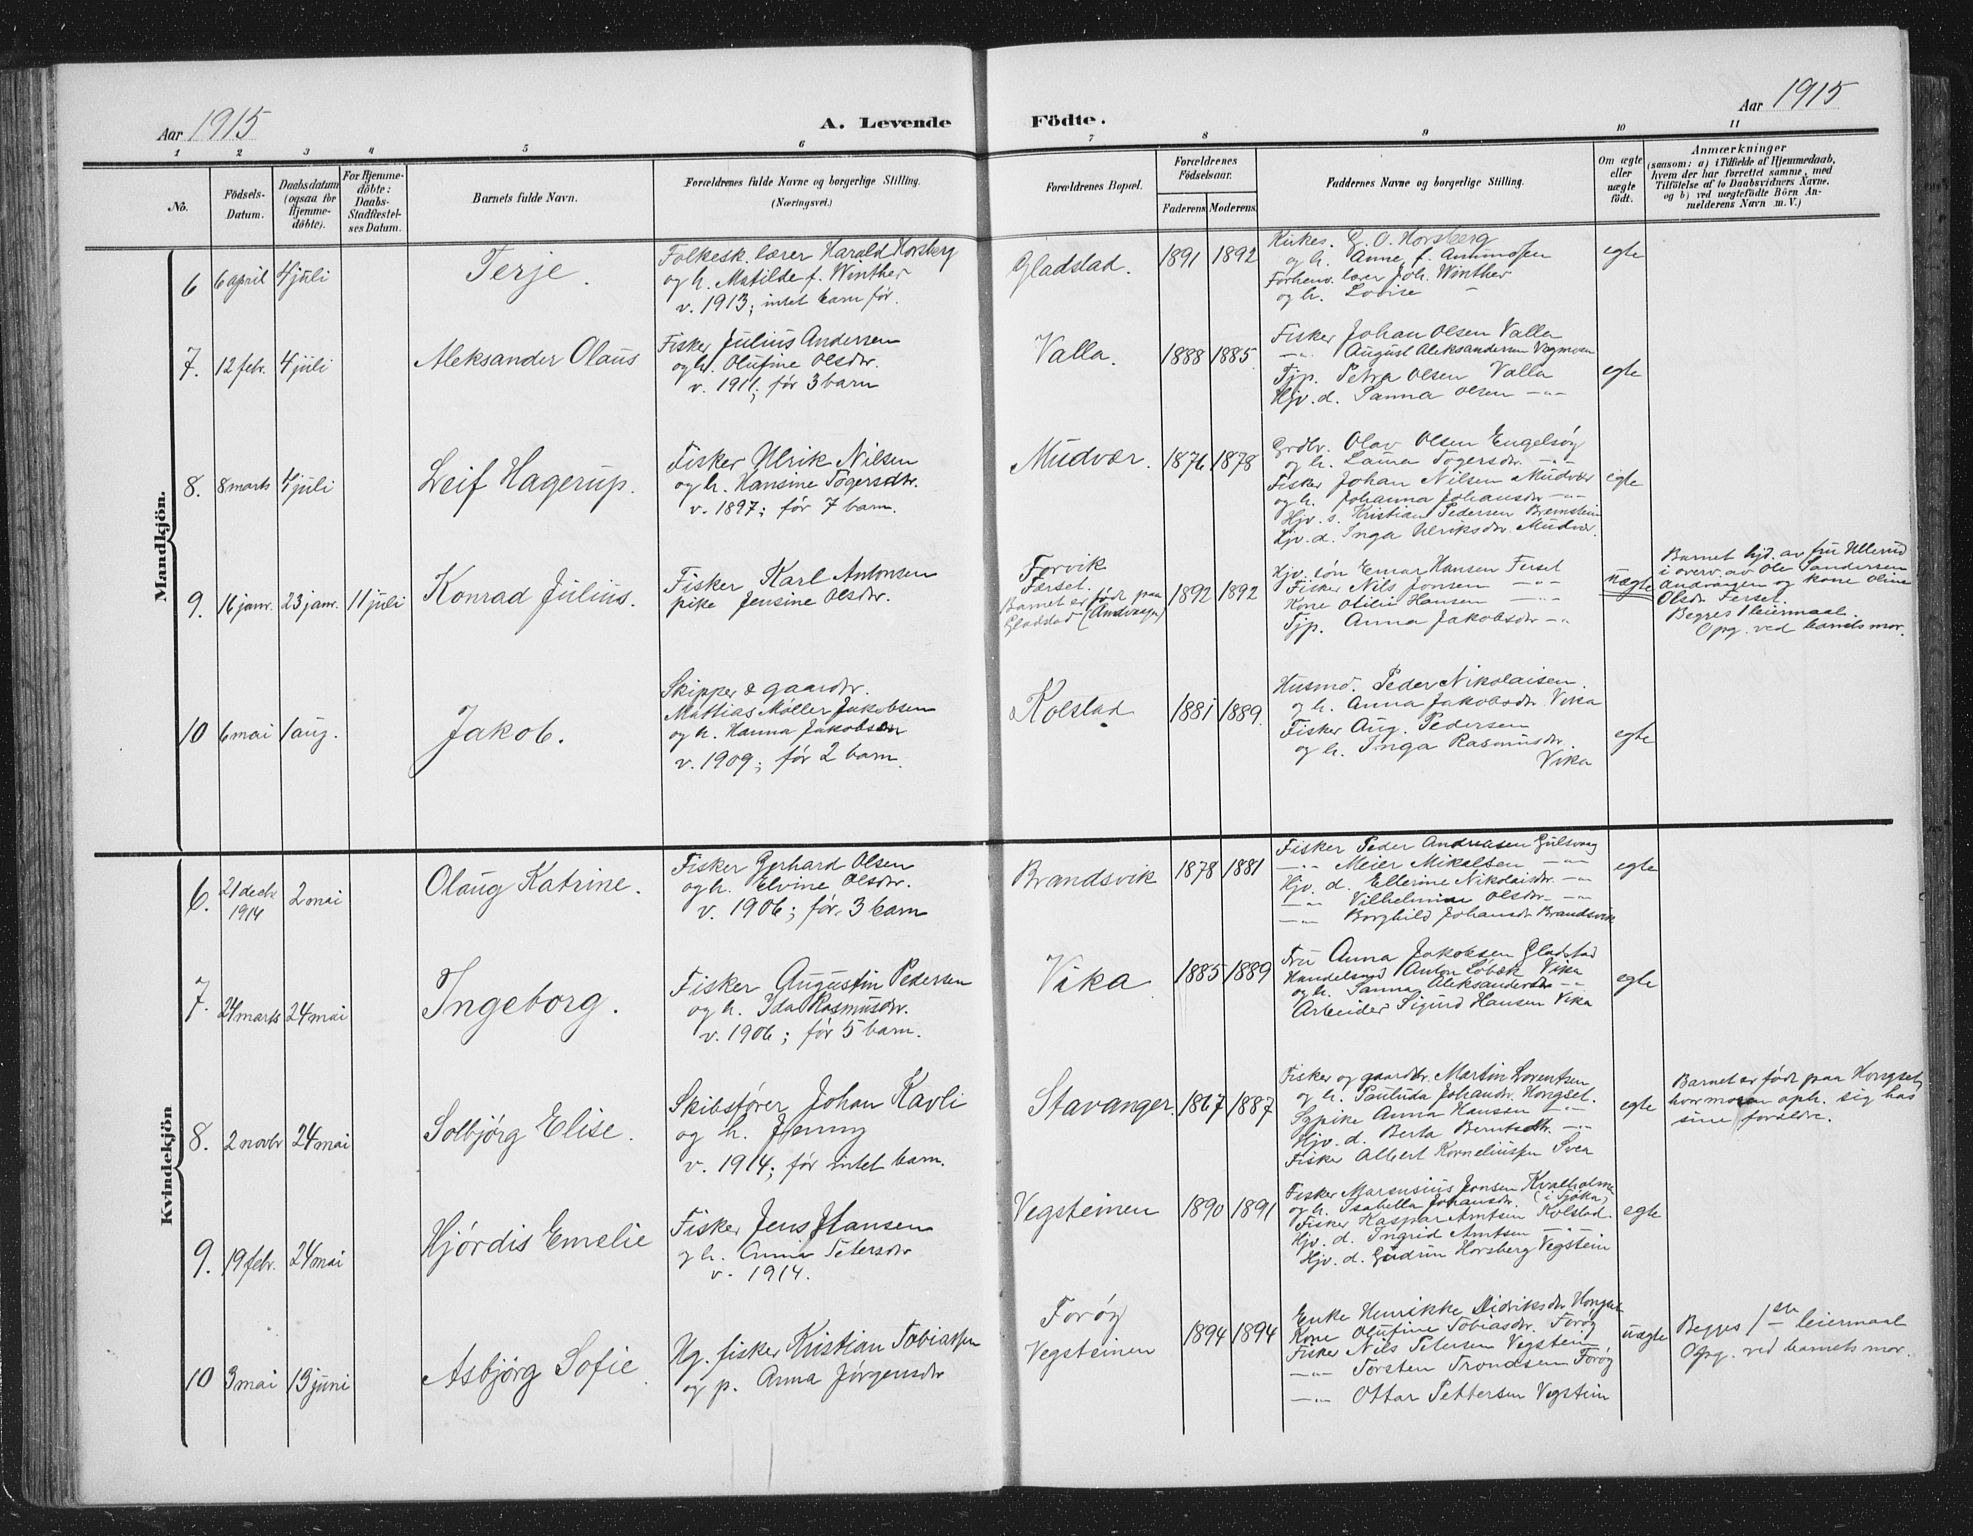 Aar 1915
A. Levende
Födte.
Aar 1915
1 2 3 4 5 6 7 8 9 10 11
No.
Födsels-
Datum.
Daabsdatum
(ogsaa for
Hjemme-
döbte).
For Hjemme-
döbte:
Daabs-
Stadfæstel-
ses Datum.
Barnets fulde Navn.
Forældrenes fulde Navne og borgerlige Stilling.
(Næringsvei.)
Forældrenes Bopæl.
Forældrenes
Födselsaar.
Faderens. Moderens.
Faddernes Navne og borgerlige Stilling.
Om ægte
eller
uægte
födt.
Anmærkninger
(saasom: a) i Tilfælde af Hjemmedaab,
hvem der har forrettet samme, med
Tilföielse af to Daabsvidners Navne,
og b) ved uægtefödte Börn An-
melderens Navn m. V.)
Mandkjön.
6 6 april 4 juli
Terje.
Folkesk. lærer Harald Horsberg
og h. Matilde f. Winther
v. 1913; intet barn før.
Gladstad.
1891 1892
Kirkes. E. O. Horsberg
og h. Anne f. Amundsen
Forhenv. lærer Joh. Winther
og h. Lovise -
egte
7. 12 febr. 4 juli
Aleksander Olaus
Fisker Julius Andersen
og h. Olufine Olsdtr.
v. 1911; før 3 barn
Valla.
1888 1885.
Fisker Johan Olsen Valla
-"- August Aleksandersen Vegmoen
Tjp. Petra Olsen Valla
Hjv. d. Sanna Olsen -"-
egte
8. 8 marts 4 juli
Leif Hagerup.
Fisker Ulrik Nilsen
og h. Hansine Togersdtr.
v. 1897; før 7 barn.
Mudvær.
1876 1878
Grdbr. Olav Olsen Engelsøy
og h. Laura Togersdtr. -"-
Fisker Johan Nilsen Mudvær
og h. Johanna Johansdtr -"-
Hjv. s. Kristian Pedersen Bremstein
Hjv. d. Inga Ulriksdtr. Mudvær.
egte
9. 16 janr. 23 janr. 11 juli
Konrad Julius.
Fisker Karl Antonsen
pike Jensine Olsdtr.
Forvik
Færset.
Barnet er født paa
Gladstad (Andvaagen)
1892 1892
Hjv. søn Einar Hansen Ferset
Fisker Nils Jonsen -"-
Kone Otilie Hansen -"-
Tjp. Anna Jakobsdtr -"-
uægte
Barnet hjd. av fru Ullerud
i overv. av Ole Sandersen
Andvaagen og kone Oline
Olsdtr Ferset.
Begges 1 leiermaal.
Opg. ved barnets mor.
10 6 mai 1 aug.
Jakob.
Skipper & gaardbr.
Mattias Møller Jakobsen
og h. Hanna Jakobsen
v. 1909; før 2 barn.
Kolstad
1881 1889.
Husmd. Peder Nikolaisen.
og h. Anna Jakobsdtr Vika
Fisker Aug. Pedersen
og h. Inga Rasmusdtr.
Vika
egte
Kvindekjön
6. 21 decbr 1914 2 mai
Olaug Katrine.
Fisker Gerhard Olsen
og h. Elvine Olsdtr.
v. 1906; før 3 barn
Brandsvik
1878 1881
Fisker Peder Andreasen Gulsvaag
-"- Meier Mikalsen -"-
Hjv. d. Ellerine Nikolaisdtr. -"-
-"- Vilhelmine Olsdtr. -"-
-"- Borghild Johansdtr Brandsvik
egte
7. 24 marts 24 mai
Ingeborg.
Fisker Augustin Pedersen
og h. Ida Rasmusdtr.
v. 1906; før 5 barn.
Vika
1885 1889
Fru Anna Jakobsen Gladstad
Handelsmd Anton Løbæk Vika
og h. Sanna Aleksandersdtr -"-
Arbeider Sigurd Hansen Vika
egte
8. 2 novbr 24 mai
Solbjørg Elise.
Skibsfører Johan Kavli
og h. Jenny
v. 1914; før intet barn.
Stavanger
1867 1887
Fisker og gaardbr. Martin Lorentsen
og h. Paulida Johansdtr. Hongset.
Sypike Anna Hansen -"-
Hjv. d. Berta Berntsdtr. -"-
Fisker Albert Korneliussen Svea
egte
Barnet er født paa Hongset,
hvor moren oph. sig hos
sine foreldre.
9. 19 febr. 24 mai
Hjørdis Emelie
Fisker Jens Hansen
og h. Anna Petersdtr
v. 1914.
Vegsteinen
1890 1891
Fisker Marsusius Jonsen Kvalholmen
og h. Isabella Johansdtr. (i Sjøka)
Fisker Kaspar Amtsen Kolstad.
Hjv. d. Ingrid Amtsen -"-
Hjv. d. Gudrun Horsberg Vegstein
egte
10 3 mai 13 juni
Asbjørg Sofie.
Ug. fisker Kristian Tobiassen
og p. Anna Jørgensdtr
Forøy
Vegsteinen
1894 1894
Enke Henrikke Didriksdtr Hongset
Kone Olufine Tobiasdtr. Forøy
Fisker Nils Petersen Vegstein
-"- Torsten Trondsen Forøy
-"- Ottar Pettersen Vegstein
uægte
Begges 1ste leiermaal
Opg. ved barnets mor.